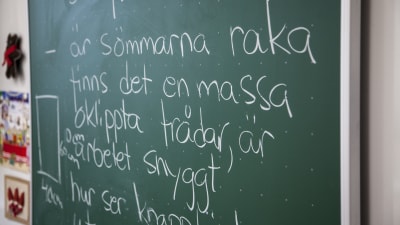 - är sömmarna raka
finns det en massa
oklippta trådar, är
arbetet snyggt
hur ser